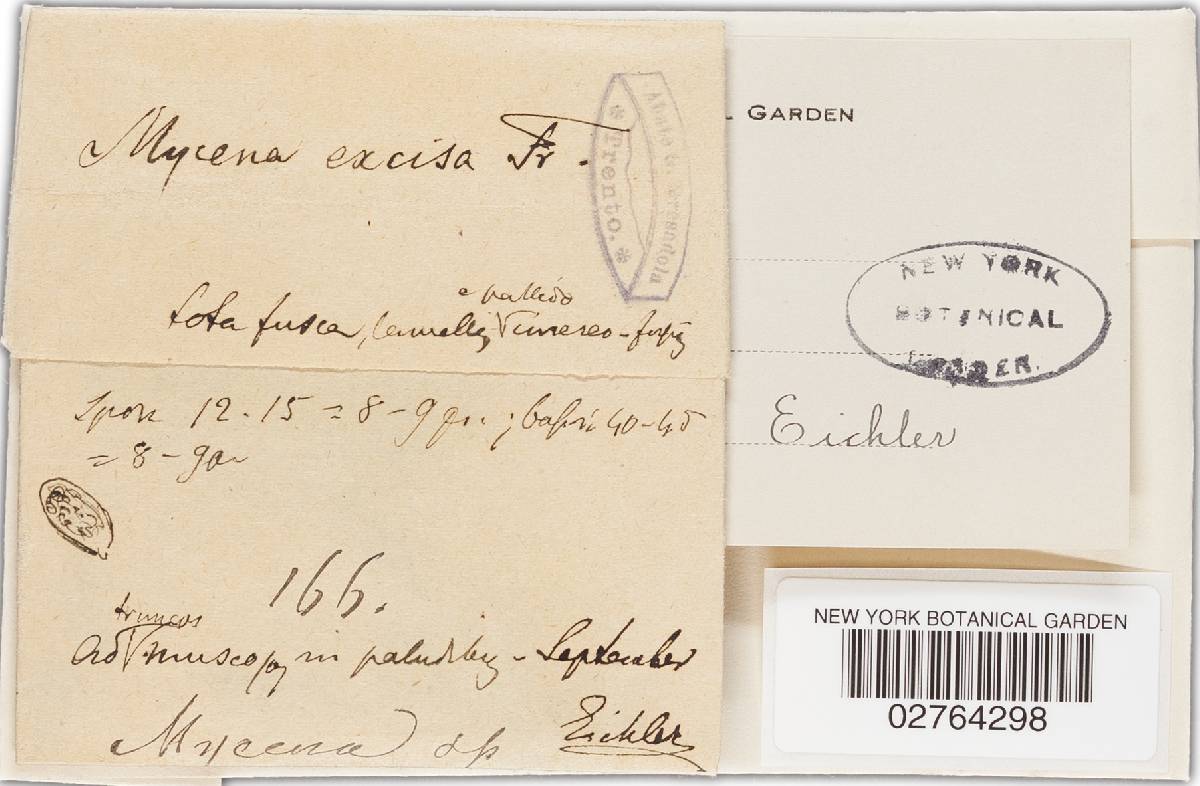 Mycena excisa Fr.
Abate G. Bresadola
* Trento. *
e pallido
tota fusca, lamellis cinereo-fuscis
Spor. 12-15 = 8-9 ; basid. 40-45
= 8-9
166.
truncos
ad muscosos in paludibus - September
Eichler
Mycena sp
L GARDEN
NEW YORK
BOTANICAL
GARDEN.
Eichler
NEW YORK BOTANICAL GARDEN
02764298